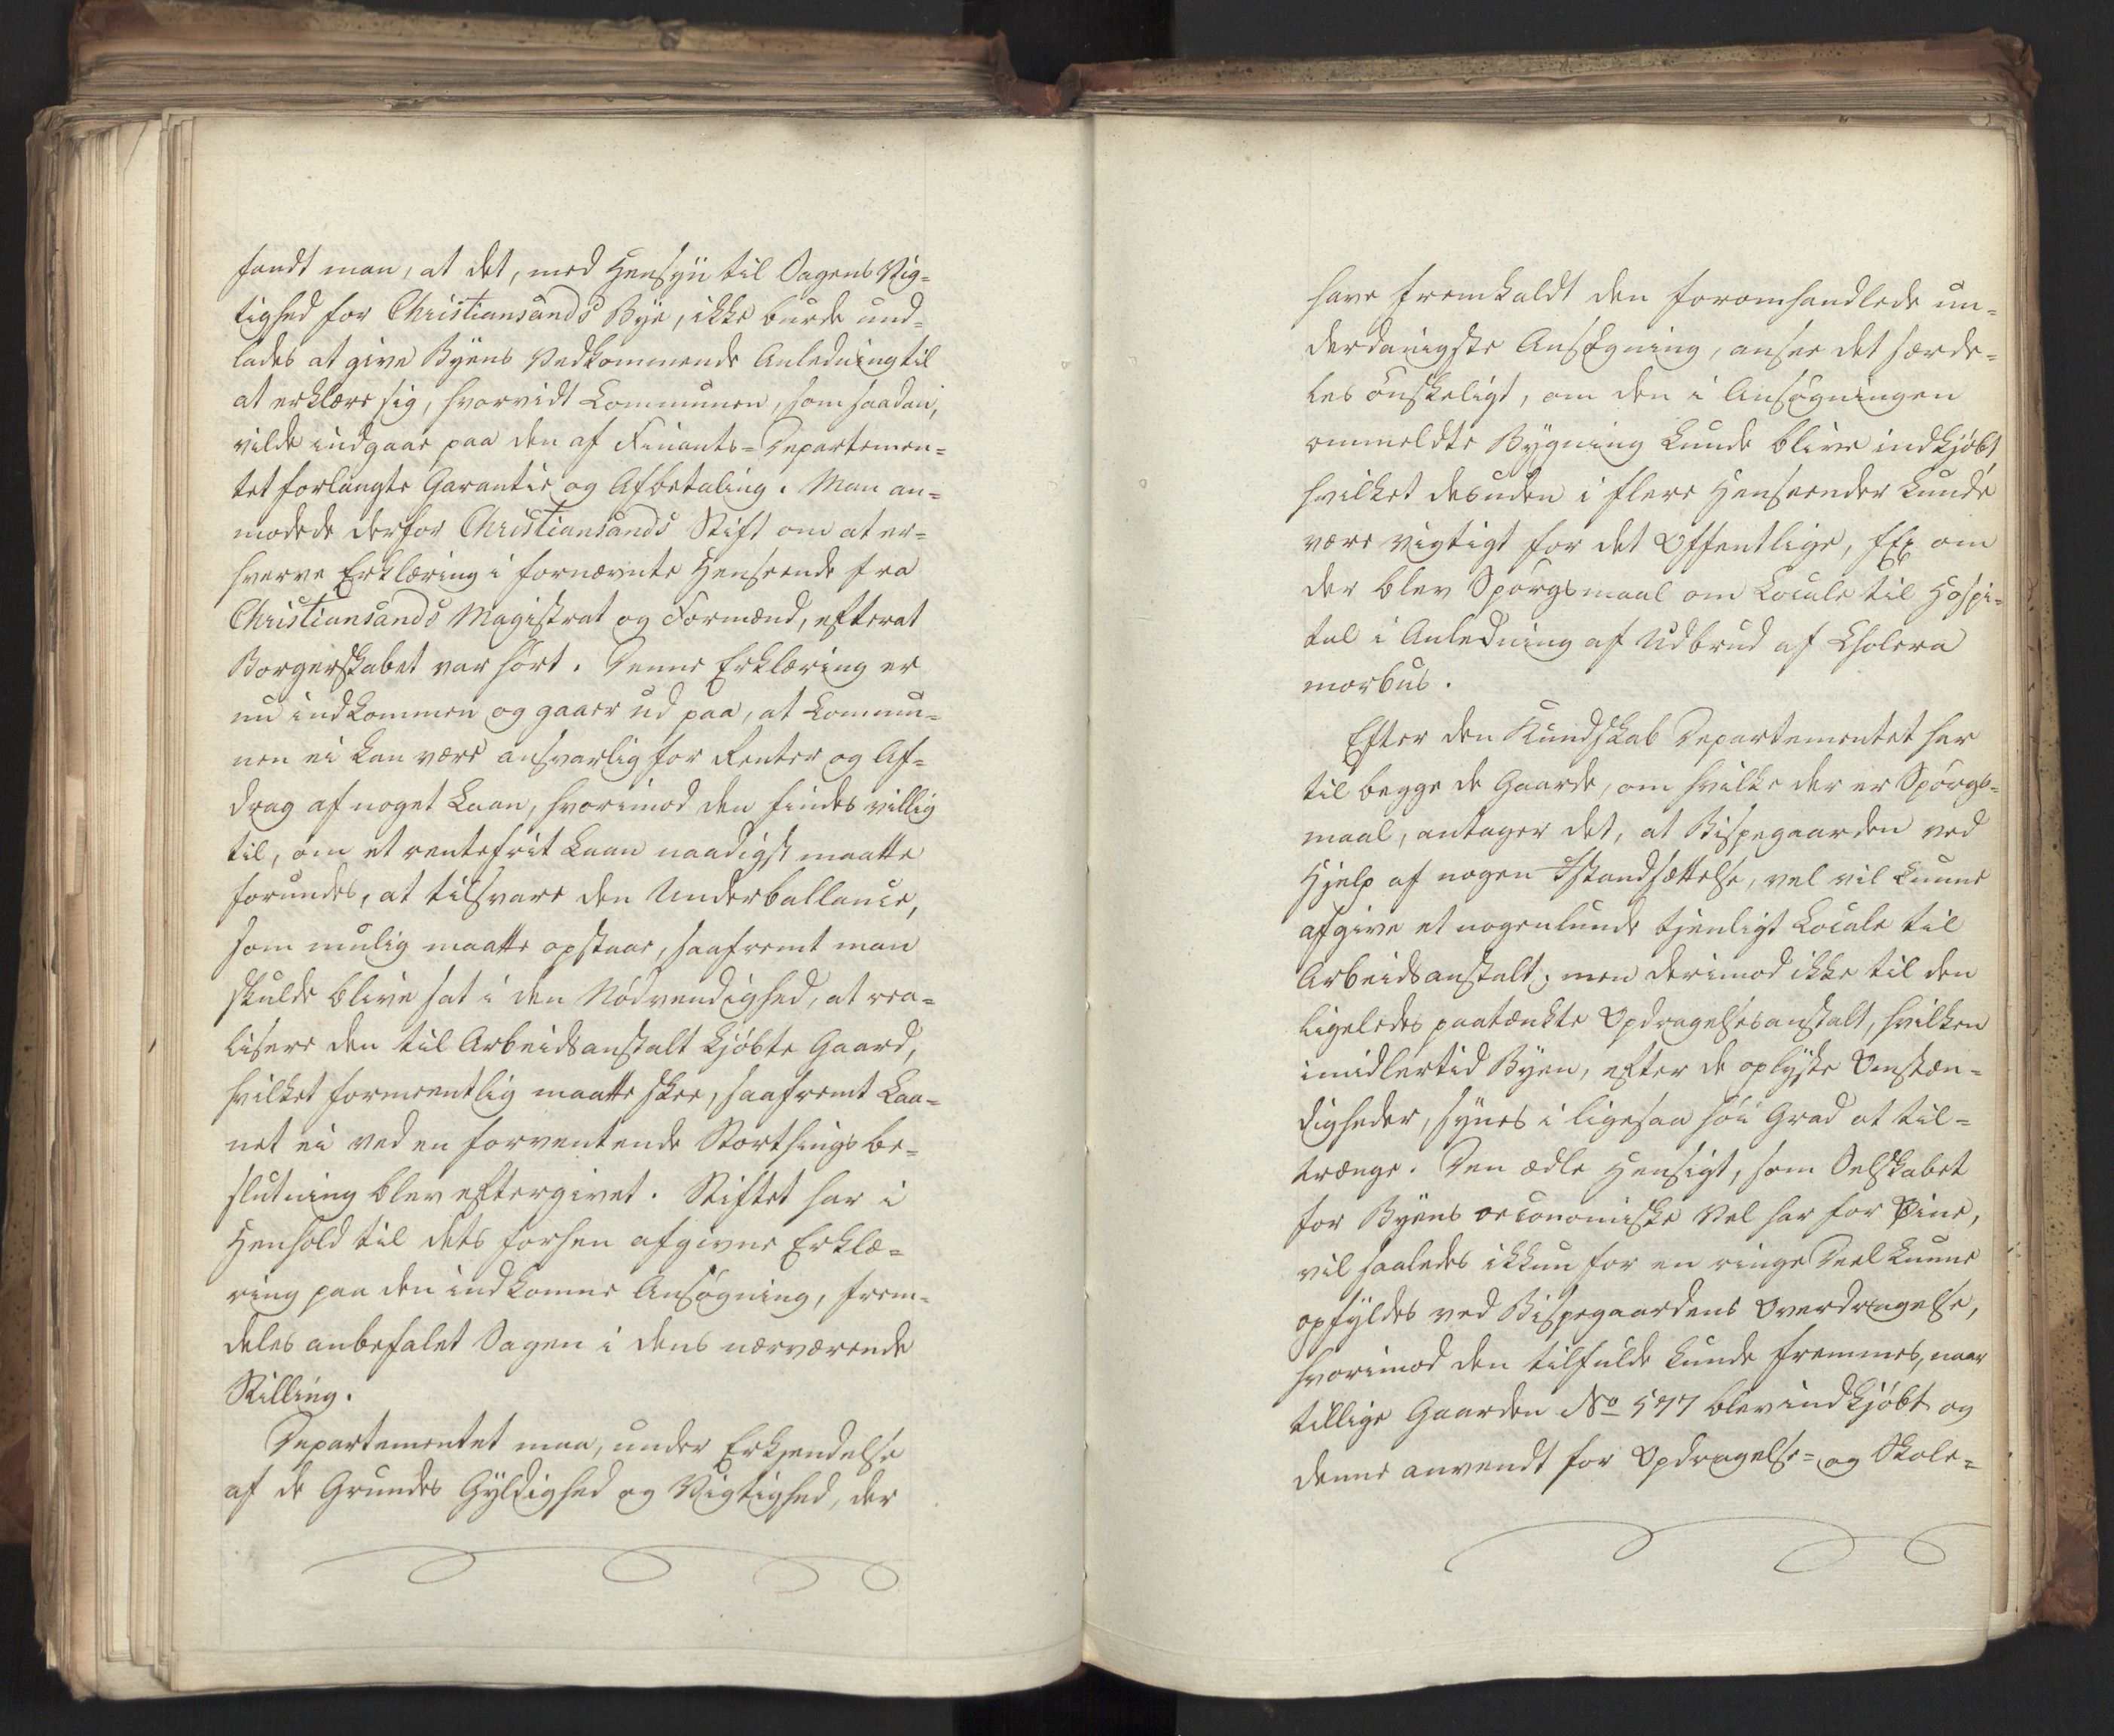 fandt man, at det, med Hensyn til Sagens Vig-
tighed for Christiansands Bye, ikke burde und-
lades at give Byens Vedkommende Anledning til
at erklære sig, hvorvidt Communen, som saadan,
vilde indgaae paa den af Finants-Departemen-
tet forlangte Garantie og Afbetaling. Man an-
modede derfor Christiansands Stift om at er-
hverve Erklæring i fornævnte Henseende fra
Christiansands Magistrat og Formænd, efterat
Borgerskabet var hørt. Denne Erklæring er
nu indkommen og gaaer ud paa, at Commu-
nen ei kan være ansvarlig for Renter og Af-
drag af noget Laan, hvorimod den findes villig
til, om et rentefrit Laan naadigst maatte
forundes, at tilsvare den Underballance,
som mulig maatte opstaae, saafremt man
skulde blive sat i den Nødvendighed, at rea-
lisere den til Arbeidsanstalt kjøbte Gaard,
hvilket formeentlig maatte skee, saafremt Laa-
net ei ved en forventende Storthingsbe-
slutning blev eftergivet. Stiftet har i
Henhold til dets forhen afgivne Erklæ-
ring paa den indkomne Ansøgning, frem-
deles anbefalet Sagen i dens nærværende
Stilling.
Departementet maa, under Erkjendelse
af de Grundes Gyldighed og Vigtighed, der
have fremkaldt den foromhandlede un-
derdanigste Ansøgning, ansee det særde-
les ønskeligt, om den i Ansøgningen
ommeldte Bygning kunde blive indkjøbt,
hvilket desuden i flere Henseender kunde
være vigtigt for det Offentlige, f Ex om
der blev Spørgsmaal om Locale til Hospi-
tal i Anledning af Udbrud af Cholera
morbus.
Efter den Kundskab Departementet har
til begge de Gaarde, om hvilke der er Spørgs-
maal, antager det, at Bispegaarden ved
Hjelp af nogen Istandsættelse, vel vil kunne
afgive et nogenlunde tjenligt Locale til
Arbeidsanstalt; men derimod ikke til den
ligeledes paatænkte Opdragelsesanstalt, hvilken
imidlertid Byen, efter de oplyste Omstæn-
digheder, synes i ligesaa høi Grad at til-
trænge. Den ædle Hensigt, som Selskabet
for Byens oeconomiske Vel har for Øine,
vil saaledes ikkun for en ringe Deel kunne
opfyldes ved Bispegaardens Overdragelse,
hvorimod den tilfulde kunde fremmes, naar
tillige Gaarden No 577 blev indkjøbt og
denne anvendt for Opdragelse- og Skole-